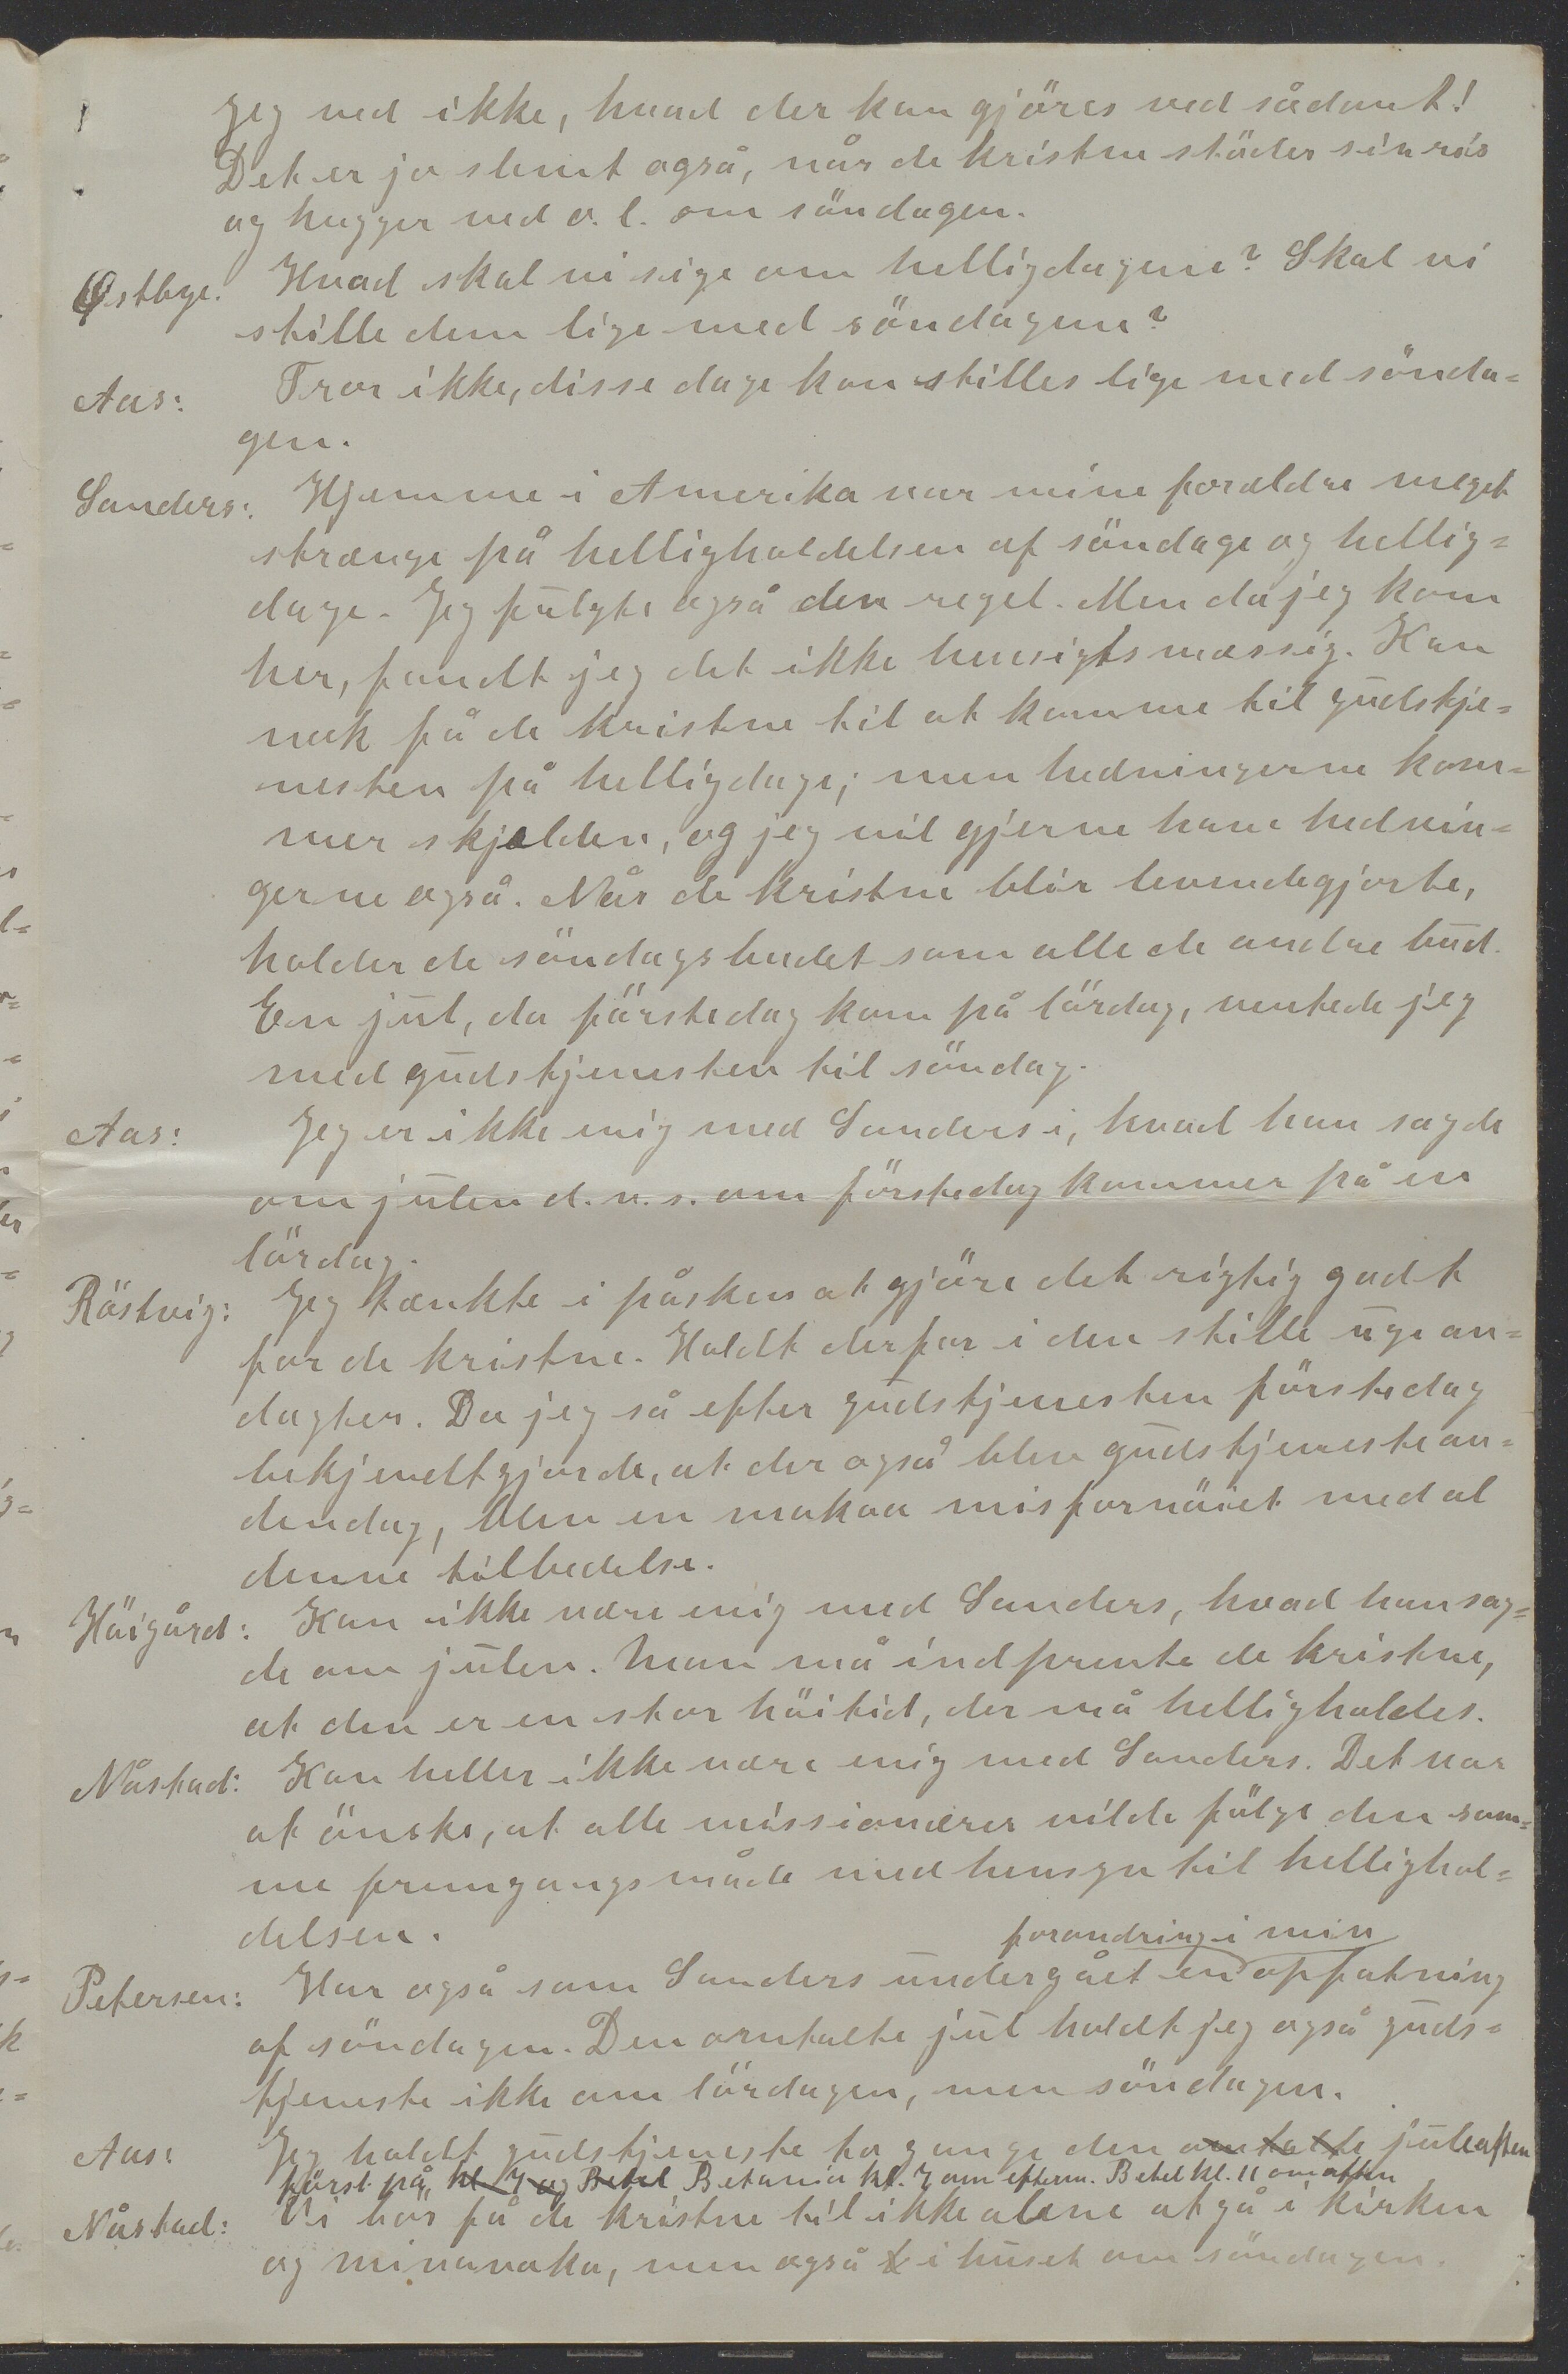 Jeg ved ikke, hvad der kan gjöres ved sådant!
Det er jo slemt også, når de kristne stöder sin ris
og hugger ved o. l. om söndagen.
Østbye. Hvad skal vi sige om helligdagene? Skal vi
stille dem lige med söndagene?
Aas: Tror ikke, disse dage kan stilles lige med sönda=
gen.
Sanders: Hjemme i Amerika var mine forældre meget
strænge på helligholdelsen af söndage og hellig=
dage. Jeg fulgte også den regel. Men da jeg kom
her, fandt jeg det ikke hensigtsmæssig. Kan
nok få de kristne til at komme til gudstje=
nesten på helligdage; men hedningerne kom=
mer skjelden, og jeg vil gjerne have hednin=
gerne også. Når de kristne blir levendegjorte,
holder de söndagsbudet som alle de andre bud.
En jul, da förstedag kom på lördag, ventede jeg
med gudstjenesten til söndag.
Aas: Jeg er ikke enig med Sanders i, hvad han sagde
om julen d. v. s. om förstedag kommer på en
lördag.
Röstvig: Jeg tænkte i påsken at gjöre det rigtig godt
for de kristne. Holdt derfor i den stille uge an=
dagter. Da jeg så efter gudstjenesten förstedag
bekjendtgjorde, at der også blev gudstjeneste an=
dendag, blev en makoa misfornöiet med al
denne tilbedelse.
Höigård: Kan ikke være enig med Sanders, hvad han sag=
de om julen. Man må indprente de kristne,
at den er en stor höitid, der må helligholdes.
Nåstad: Kan heller ikke være enig med Sanders. Det var
at önske, at alle missionærer vilde fölge den sam=
me fremgangsmåde med hensyn til hellighol=
delsen.
forandring i min
Petersen: Har også som Sanders undergået en opfatning
af söndagen. Den omtalte jul holdt jeg også guds=
tjeneste ikke om lördagen, men söndagen.
Aas: Jeg holdt gudstjeneste to gange den omtalte juleaften
först på, kl 7 og Betel Betania kl. 7 om efterm. Betel kl. 11 om aften
Nåstad: Vi bör få de kristne til ikke alene at gå i kirken
og mivavaka, men også i huset om söndagen.